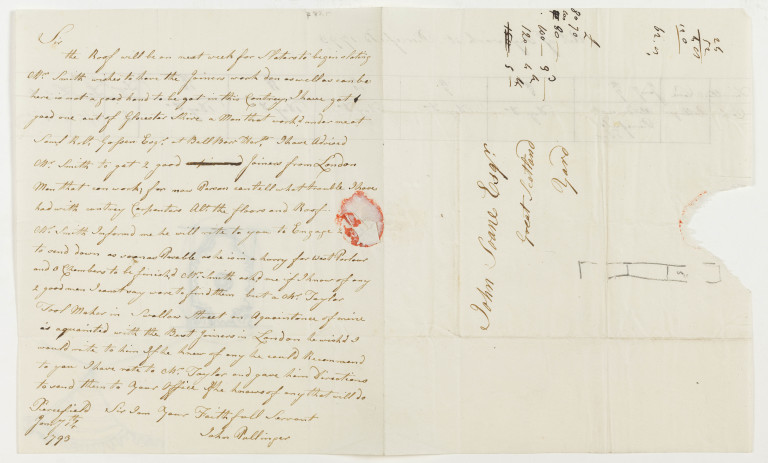 Sir
the Roof will be on next week for Slaters to begin slating
Mr. Smith wishes to have the Joiners work don as well as can be
here is not a good hand to be got in this Contrey I have got 1
good one out of Gloucster Shire a Man that work'd under me at
Saml. Robt. Gaussen Esqr. at Bell Barr I have Advised
Mr. Smith to get 2 good Joiners from London
Men that can work for now Person can tell what trouble I have
had with contrey Carpenters Abt. the floors and Roof
Mr. Smith Informd me he will rite to you to Engage 2
to send down as soon as Posable as he is in a hurrey for West Parlour
and 2 Chambers to be finish'd Mr. Smith askd me if I knew of any
2 good men I cannt say were to find them but a Mr. Taylor
Tool Maker in Swallow Street an Aquaintance of mine
is aquainted with the Best Joiners in London he wish'd I
would rite to him If he knew of any he could Recomend
to you I have rote to Mr. Taylor and gave him Directions
to send them to Your Office If he knows of any that will do
Piercefield Sir I am Your Faithfull Servant
Jany 7th
1793
John Pullinger
John Soane Esqr.
Great Scotland
Yard